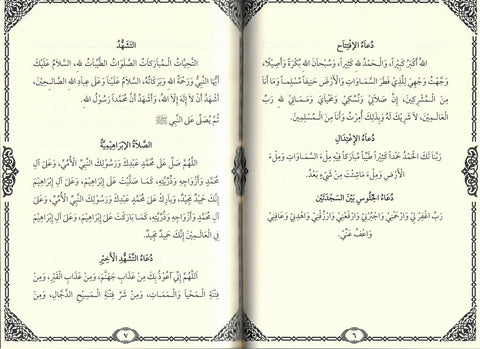 دُعَاءُ الِافْتِتَاحِ
اللهُ أَكْبَرُ كَبِيْرًا، وَالْحَمْدُ للهِ كَثِيْرًا، وَسُبْحَانَ اللهِ بُكْرَةً وَأَصِيْلًا،
وَجَّهْتُ وَجْهِيَ لِلَّذِيْ فَطَرَ السَّمَاوَاتِ وَالْأَرْضَ حَنِيْفًا مُسْلِمًا وَمَا أَنَا
مِنَ الْـمُشْرِكِيْنَ، إِنَّ صَلَاتِيْ وَنُسُكِيْ وَمَحْيَايَ وَمَمَاتِيْ للهِ رَبِّ
الْعَالَـمِيْنَ، لَا شَرِيْكَ لَهُ وَبِذٰلِكَ أُمِرْتُ وَأَنَا مِنَ الْـمُسْلِمِيْنَ.
دُعَاءُ الِاعْتِدَالِ
رَبَّنَا لَكَ الْحَمْدُ حَمْدًا كَثِيْرًا طَيِّبًا مُبَارَكًا فِيْهِ مِلْءَ السَّمَاوَاتِ وَمِلْءَ
الْأَرْضِ وَمِلْءَ مَاشِئْتَ مِنْ شَيْءٍ بَعْدُ.
دُعَاءُ الْجُلُوْسِ بَيْنَ السَّجْدَتَيْنِ
رَبِّ اغْفِرْ لِيْ وَارْحَمْنِيْ وَاجْبُرْنِيْ وَارْفَعْنِيْ وَارْزُقْنِيْ وَاهْدِنِيْ وَعَافِنِيْ
وَاعْفُ عَنِّيْ.
٦
التَّشَهُّدُ
التَّحِيَّاتُ الْـمُبَارَكَاتُ الصَّلَوَاتُ الطَّيِّبَاتُ للهِ، السَّلَامُ عَلَيْكَ
أَيُّهَا النَّبِيُّ وَرَحْمَةُ اللهِ وَبَرَكَاتُهُ، السَّلَامُ عَلَيْنَا وَعَلَى عِبَادِ اللهِ الصَّالِحِيْنَ،
أَشْهَدُ أَنْ لَا إِلٰهَ إِلَّا اللهُ، وَأَشْهَدُ أَنَّ مُحَمَّدًا رَسُوْلُ اللهِ.
ثُمَّ يُصَلِّي عَلَى النَّبِيِّ ﷺ
الصَّلَاةُ الْإِبْرَاهِيْمِيَّةُ
اللّٰهُمَّ صَلِّ عَلَى مُحَمَّدٍ عَبْدِكَ وَرَسُوْلِكَ النَّبِيِّ الْأُمِّيِّ، وَعَلَى آلِ
مُحَمَّدٍ وَأَزْوَاجِهِ وَذُرِّيَّتِهِ، كَمَا صَلَّيْتَ عَلَى إِبْرَاهِيْمَ، وَعَلَى آلِ إِبْرَاهِيْمَ
إِنَّكَ حَمِيْدٌ مَجِيْدٌ، وَبَارِكْ عَلَى مُحَمَّدٍ عَبْدِكَ وَرَسُوْلِكَ النَّبِيِّ الْأُمِّيِّ، وَعَلَى آلِ
مُحَمَّدٍ وَأَزْوَاجِهِ وَذُرِّيَّتِهِ، كَمَا بَارَكْتَ عَلَى إِبْرَاهِيْمَ، وَعَلَى آلِ إِبْرَاهِيْمَ
فِي الْعَالَـمِيْنَ إِنَّكَ حَمِيْدٌ مَجِيْدٌ.
دُعَاءُ التَّشَهُّدِ الْأَخِيْرِ
اَللّٰهُمَّ إِنِّيْ أَعُوْذُ بِكَ مِنْ عَذَابِ جَهَنَّمَ، وَمِنْ عَذَابِ الْقَبْرِ، وَمِنْ
فِتْنَةِ الْـمَحْيَا وَالْـمَمَاتِ، وَمِنْ شَرِّ فِتْنَةِ الْـمَسِيْحِ الدَّجَّالِ، وَمِنَ
٧